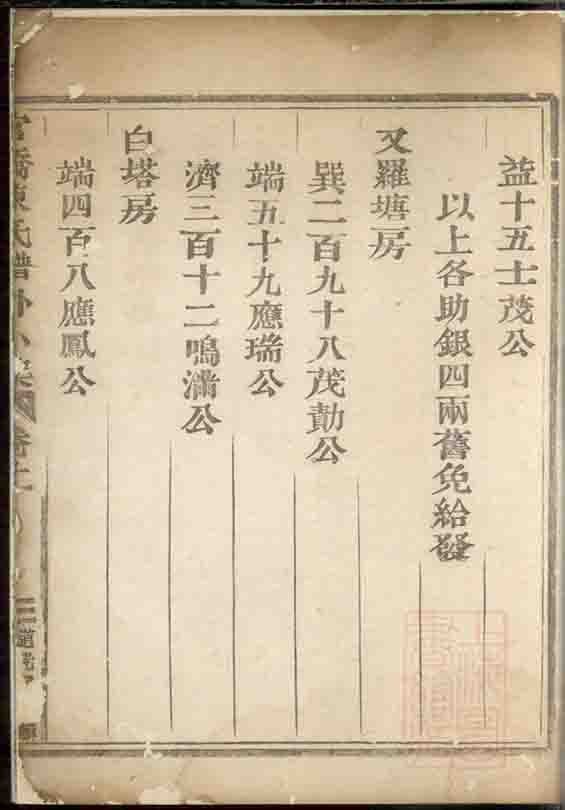 益十五士茂公
以上各助銀四兩舊免給發
又羅塘房
巽二百九十八茂勣公
端五十九應瑞公
濟三百十二鳴滿公
白塔房
端四百八應鳳公
氏譜